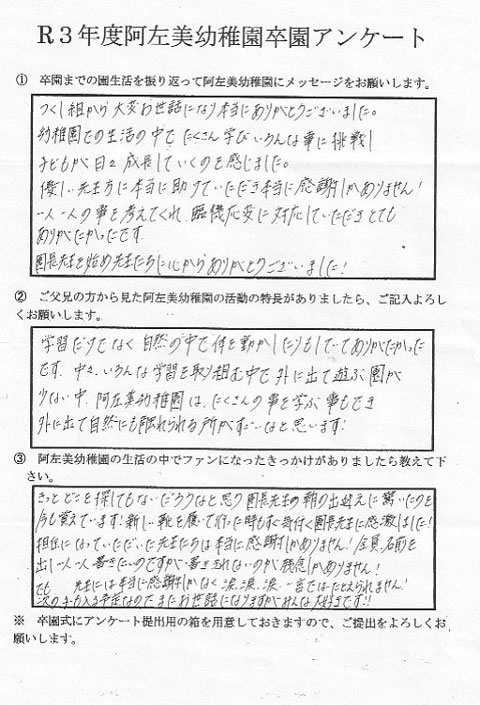 R3年度阿左美幼稚園卒園アンケート
① 卒園までの園生活を振り返って阿左美幼稚園にメッセージをお願いします。
つくし組から大変お世話になり本当にありがとうございました。
幼稚園での生活の中でたくさん学びいろんな事に挑戦し
子どもが日々成長していくのを感じました。
優しい先生方に本当に助けていただき本当に感謝しかありません!
一人一人の事を考えてくれ、臨機応変に対応していただきとても
ありがたかったです。
園長先生を始め先生たちに心からありがとうございました!
② ご父兄の方から見た阿左美幼稚園の活動の特長がありましたら、ご記入よろし
くお願いします。
学習だけでなく自然の中で体を動かしたりもしていてありがたかった
です。中々、いろんな学習を取り組む中で外に出て遊ぶ園が
少ない中、阿左美幼稚園は、たくさんの事を学ぶ事もでき
外に出て自然にも触れられる所がすごいなと思います!
③ 阿左美幼稚園の生活の中でファンになったきっかけがありましたら教えて下
さい。
きっとどこを探してもないだろうなと思う園長先生の朝の出迎えに驚いたのを
今も覚えています!新しい靴を履いて行った時もすぐ気付く園長先生に感激しました!
担任になっていただいた先生たちは本当に感謝しかありません!全員名前を
出し一人一人書きたいのですが書ききれないのが残念しかありません!
でも 先生には本当に感謝しかなく涙、涙、涙 一言ではたとえられません!
次の子が入る予定なのでまたお世話になりますがみんな大好きです!!
※ 卒園式にアンケート提出用の箱を用意しておきますので、ご提出をよろしくお
願いします。